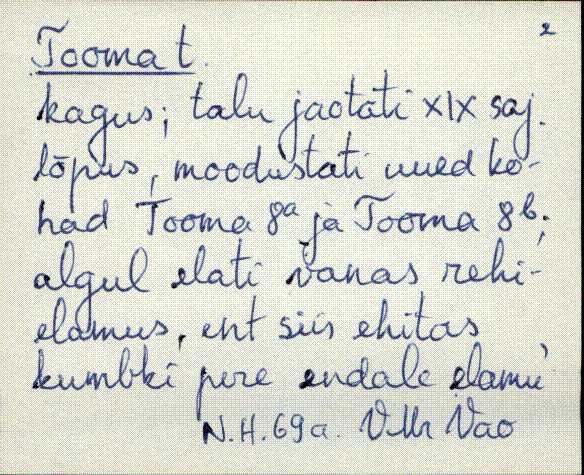 2
Tooma t.
kagus; talu jaotati XIX saj.
lõpus, moodustati uued ko-
had Tooma 8a ja Tooma 8b;
algul elati vanas rehi-
elamus, ent siis ehitas
kumbki pere endale elamu
N.H. 69a. VMr Vao